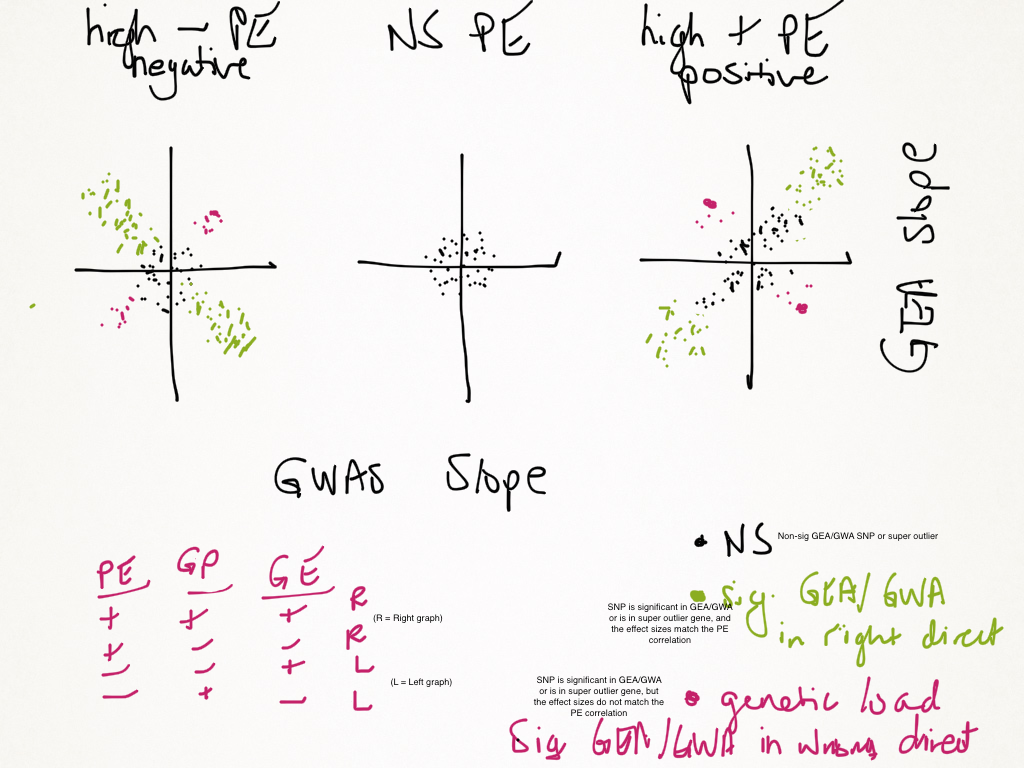 high - PE
negative
NS PE
high + PE
positive
GEA Slope
GWAS Slope
PE GP GE
+ + + R
(R = Right graph)
+ - - R
- - + L
(L = Left graph)
- + - L
• NS
Non-sig GEA/GWA SNP or super outlier
• sig. GEA/GWA
in right direct
SNP is significant in GEA/GWA
or is in super outlier gene, and
the effect sizes match the PE
correlation
SNP is significant in GEA/GWA
or is in super outlier gene, but
the effect sizes do not match the
PE correlation
• genetic load
Sig GEA/GWA in wrong direct